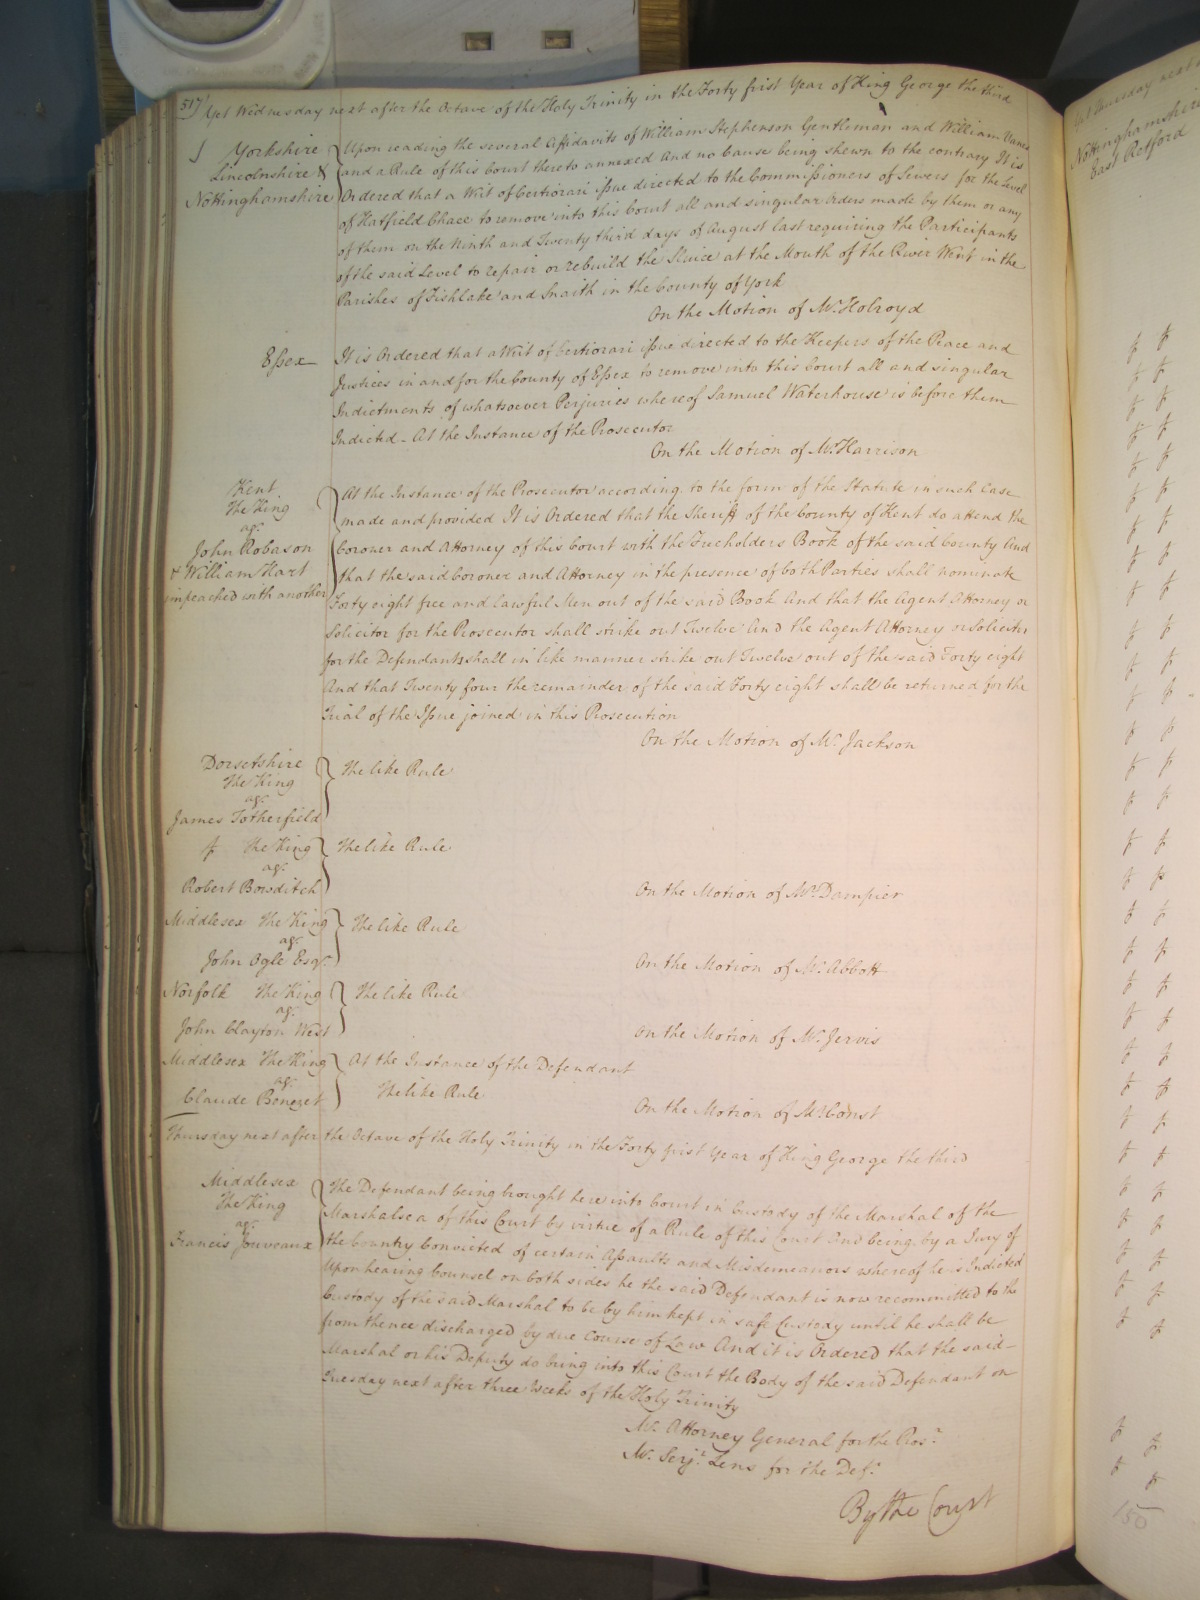 517
Yet Wednesday next after the Octave of the Holy Trinity in the Forty first Year of King George the third
Yorkshire
Lincolnshire &
Nottinghamshire
Upon reading the several Affidavits of William Stephenson Gentleman and William
and a Rule of this Court thereto annexed And no Cause being shewn to the contrary It is
Ordered that a Writ of Certiorari issue directed to the Commissioners of Sewers for the Level
of Hatfield Chace to remove into this Court all and singular Orders made by them or any
of them on the Ninth and Twenty third days of August last requiring the Participants
of the said Level to repair or rebuild the Sluice at the Mouth of the River Went in the
Parishes of Fishlake and Snaith in the County of York
On the Motion of Mr. Holroyd
Essex
It is Ordered that a Writ of Certiorari issue directed to the Keepers of the Peace and
Justices in and for the County of Essex to remove into this Court all and singular
Indictments of whatsoever Perjuries whereof Samuel Waterhouse is before them
Indicted - At the Instance of the Prosecutor
On the Motion of Mr. Harrison
Kent
The King
agt.
John Robason
& William Hart
impeached with another
At the Instance of the Prosecutor according to the form of the Statute in such Case
made and provided It is Ordered that the Sheriff of the County of Kent do attend the
Coroner and Attorney of this Court with the Freeholders Book of the said County And
that the said Coroner and Attorney in the presence of both Parties shall nominate
Forty eight free and lawful Men out of the said Book And that the Agent Attorney or
Solicitor for the Prosecutor shall strike out Twelve And the Agent Attorney or Solicitor
for the Defendants shall in like manner strike out Twelve out of the said Forty eight
And that Twenty four the remainder of the said Forty eight shall be returned for the
Trial of the Issue joined in this Prosecution
On the Motion of Mr. Jackson
Dorsetshire
The King
agt.
James Fotherfield
The like Rule
The King
agt.
Robert Bowditch
The like Rule
On the Motion of Mr. Dampier
Middlesex The King
agt.
John Ogle Esqr.
The like Rule
On the Motion of Mr. Abbott
Norfolk The King
agt.
John Clayton West
The like Rule
On the Motion of Mr. Jervis
Middlesex The King
agt.
Claude Benezet
At the Instance of the Defendant
The like Rule
On the Motion of Mr. Const
Thursday next after the Octave of the Holy Trinity in the Forty first Year of King George the third
Middlesex
The King
agt.
Francis Jouveaux
The Defendant being brought here into Court in Custody of the Marshal of the
Marshalsea of this Court by virtue of a Rule of this Court And being by a Jury of
the Country Convicted of certain Assaults and Misdemeanors whereof he is Indicted
Upon hearing Counsel on both sides he the said Defendant is now recommitted to the
Custody of the said Marshal to be by him kept in safe Custody until he shall be
from thence discharged by due Course of Law And it is Ordered that the said
Marshal or his Deputy do bring into this Court the Body of the said Defendant on
Tuesday next after three Weeks of the Holy Trinity
Mr. Attorney General for the Pros.r
Mr. Serjt. Lens for the Deft.
By the Court
Yet Thursday next
Nottinghamshire
East Retford
150